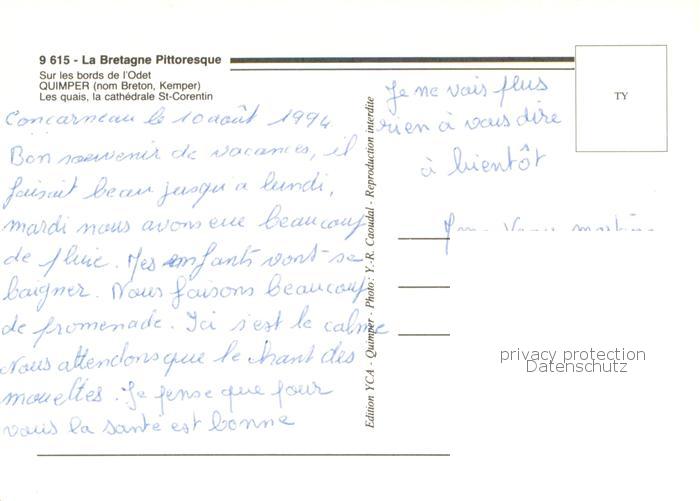 9 615 - La Bretagne Pittoresque
Sur les bords de l'Odet
QUIMPER (nom Breton, Kemper)
Les quais, la cathédrale St-Corentin
Concarneau le 10 août 1994
Bon souvenir de vacances, il
faisait beau jusqu'a lundi,
mardi nous avons eue beaucoup
de pluie. Mes enfants vont se
baigner. Nous faisons beaucoup
de promenade. Ici s'est le calme
Nous attendons que le chant des
mouettes. Je pense que pour
vous la santé est bonne
Je ne vais plus
rien à vous dire
à bientôt
TY
Edition YCA - Quimper - Photo : Y.-R. Caoudal - Reproduction interdite
privacy protection
Datenschutz